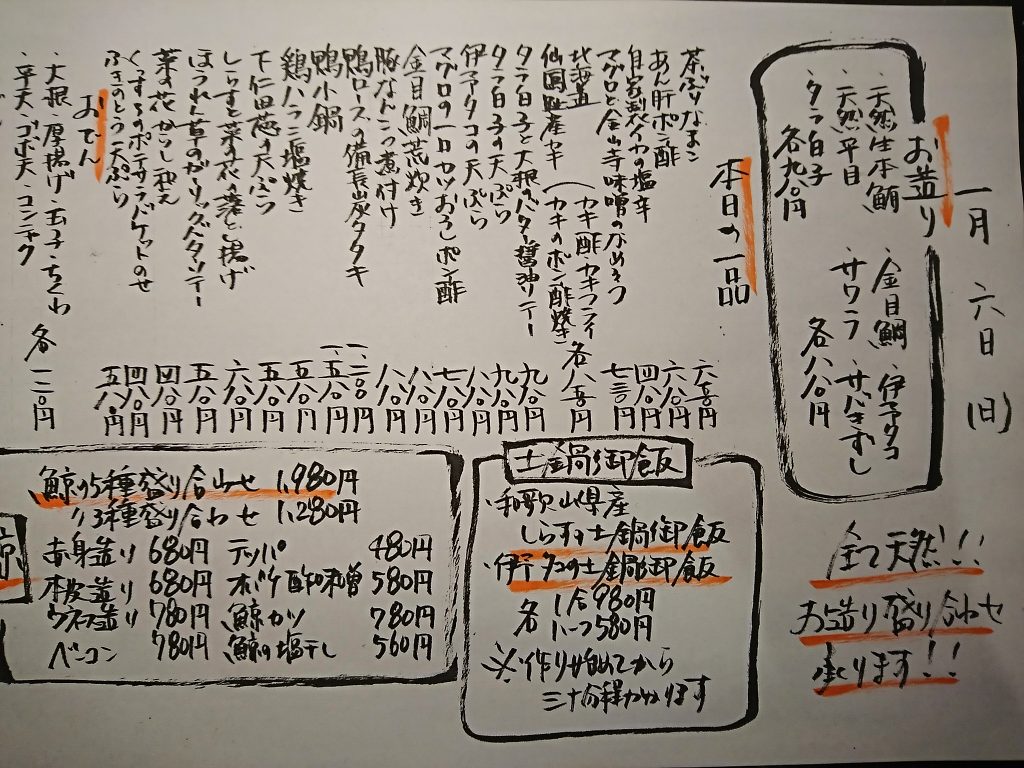 一月 六日 (日)
お造り
・天然生本鮪 ・金目鯛 ・伊予タコ
・天然平目 ・サワラ ・サバきずし
・タラ白子
各九八〇円 各八八〇円
全て天然!!
お造り盛り合わせ
承ります!!
本日の一品
茶ぶりなまこ
あん肝ポン酢 六八〇円
自家製スイカの塩辛 四八〇円
マグロと金山寺味噌のなめろう 七三〇円
北海道
仙鳳趾産カキ (カキ酢・カキフライ カキのポン酢焼き)
タラ白子と大根のバター醤油ソテー 九八〇円
タラ白子の天ぷら 九八〇円
伊予タコの天ぷら 八八〇円
マグロの一口カツおろしポン酢 七八〇円
金目鯛荒炊き 八八〇円
豚なんこつ煮付け 八八〇円
鴨ロースの備長炭タタキ
鴨小鍋
鶏ハラミ塩焼き 五八〇円
下仁田葱の天ぷら 五八〇円
しらすと菜の花の落とし揚げ 六八〇円
ほうれん草のガーリックバターソテー 五八〇円
菜の花からし和え 四八〇円
くずし豆のポテサラバケットのせ 四八〇円
ふきのとう天ぷら 五八〇円
おでん
・大根・厚揚げ・玉子・ちくわ 各一二〇円
・平天・ゴボ天・コンニャク
土鍋御飯
・和歌山県産
しらすの土鍋御飯
・伊予タコの土鍋御飯
各 1合980円
1/2つ580円
※作り始めてから
三十分程かかります
鯨の5種盛り合わせ 1,980円
〃3種盛り合わせ 1,280円
赤身造り 680円 テッパ 480円
本皮造り 680円 オバケ酢味噌 580円
ウネス造り 780円 鯨カツ 780円
ベーコン 780円 鯨の塩干し 560円